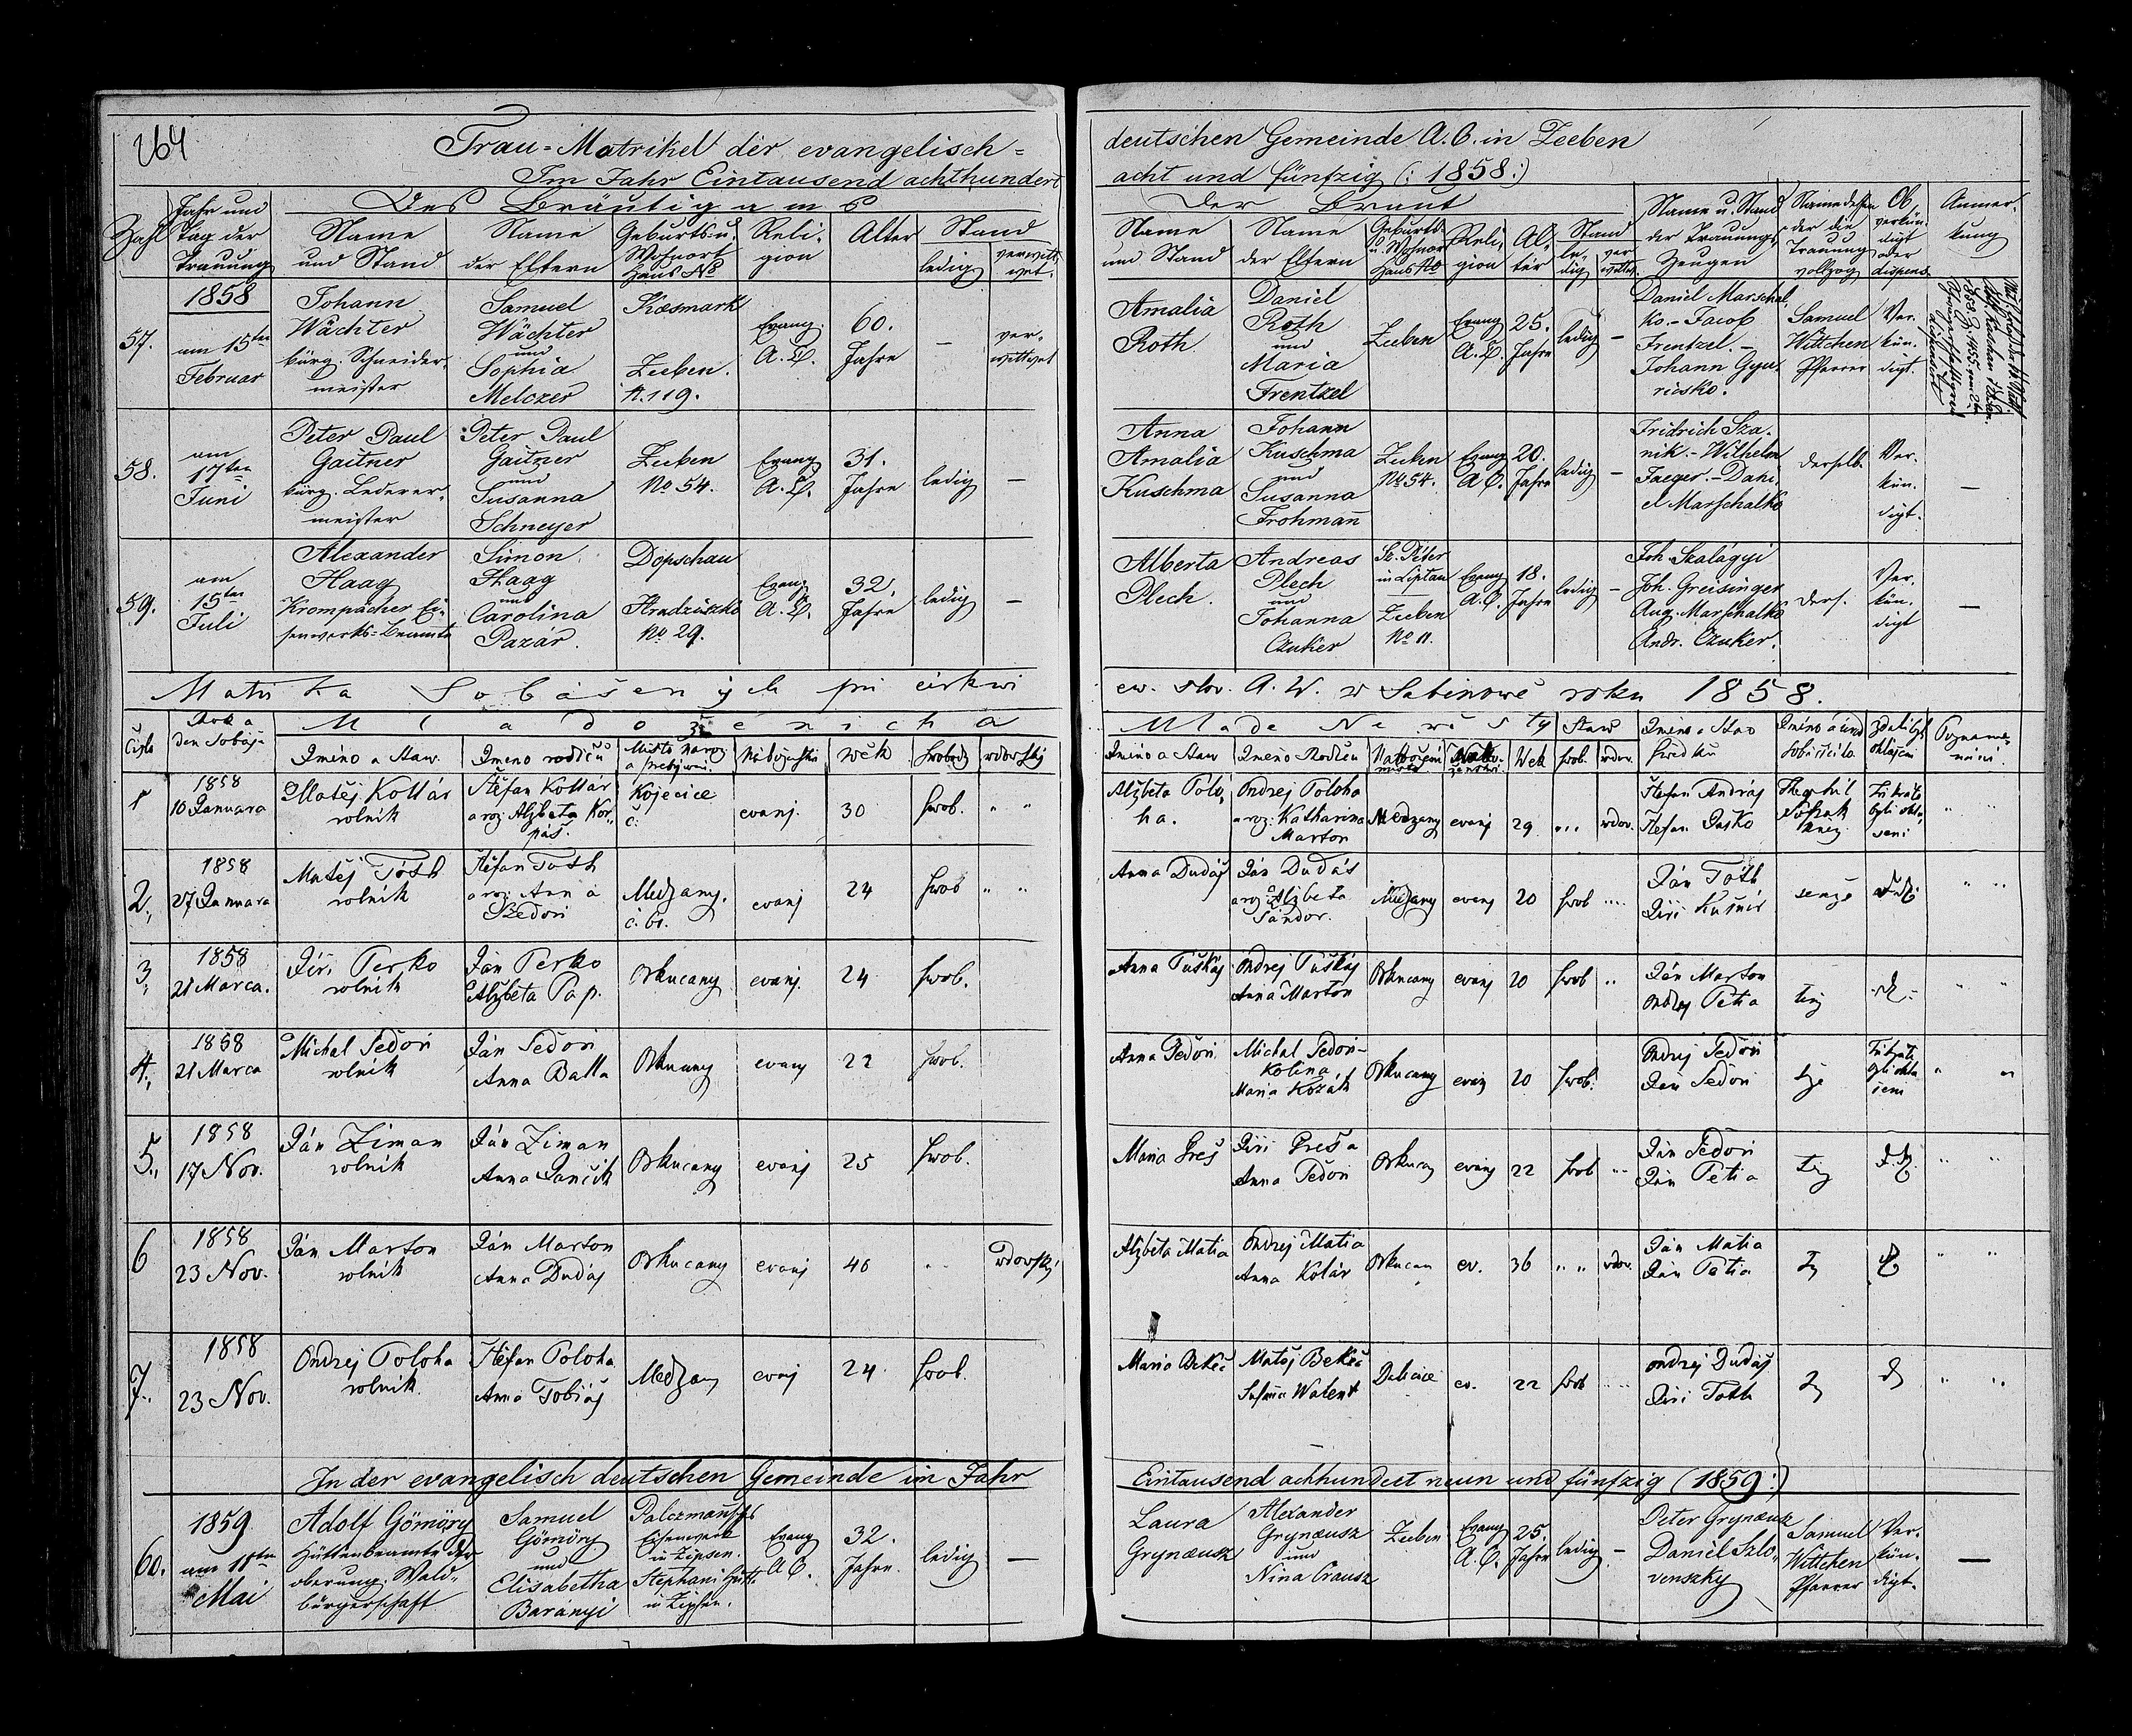 264
Trau-Matrikel der evangelisch-
deutschen Gemeinde A.C. in Zeeben
Im Jahr Eintausend achthundert
acht und fünfzig (: 1858 :)
Zahl
Jahr und
Tag der
Trauung
Des Bräutigams
Name
und Stand
Name
der Eltern
Geburts- u.
Wohnort
Haus No
Reli-
gion
Alter
Stand
ledig
verwitt-
wet.
Der Braut
Name
und Stand
Name
der Eltern
Geburts-
u. Wohnort
Haus No
Reli-
gion
Al-
ter
Stand
le-
dig
ver-
wittwet
Name u. Stand
der Trauungs-
Zeugen
Name dessen
der die
Trauung
vollzog
Ob
verkün-
digt
oder
dispens.
Anmer-
kung
57.
1858
am 15ten
Februar
Johann
Wächter
bürg. Schneider-
meister
Samuel
Wächter
und
Sophia
Melczer
Kæsmark
Zeeben.
N. 119.
Evang.
A. C.
60.
Jahre
—
ver-
wittwet
Amalia
Roth
Daniel
Roth
und
Maria
Frentzel
Zeeben
Evang
A. C.
25.
Jahre
ledig
—
Daniel Marschal-
ko. - Jacob
Frentzel. -
Johann Gyu-
ricsko.
Samuel
Wittchen
Pfarrer
Ver-
kün-
digt.
58.
am
17ten
Juni
Peter Paul
Gaitner
bürg. Lederer-
meister
Peter Paul
Gaitner
und
Susanna
Schneyer
Zeeben
No 54.
Evang
A. C.
31.
Jahre
ledig
—
Anna
Amalia
Kuschma
Johann
Kuschma
und
Susanna
Frohman̄
Zeeben
No 54.
Evang
A C.
20.
Jahre
ledig
—
Fridrich Sza-
nik. - Wilhelm
Jaeger. - Dani-
el Marschalko
derselb.
Ver-
kün-
digt.
—
59.
am
15ten
Juli
Alexander
Haag
Krompacher Ei-
senwerks=Beamte
Simon
Haag
und
Carolina
Pazár.
Dopschau
No 29.
Evang
A. C.
32.
Jahre
ledig
—
Alberta
Plech.
Andreas
Plech
und
Johanna
Czuker
Sz. Péter
in Liptau
Zeeben
No 11.
Evang
A. C.
18.
Jahre
ledig
—
Joh. Szalágyi
Joh. Greisinger
Aug. Marschalko
Andr. Czuker.
ders.
Ver-
kün-
digt
—
Matrika Sobášených pri cirkwi
ew. slov. A. W. w Sabinowě roku 1858.
Číslo
Rok a
den Sobáš-
Mladoženicha
Jméno a Staw
Jmeno rodičů
Místo naroz.
a přebýwaní.
wěk
swobodý
wdowský
Mlade Newěsty
Staw
Jméno a Staw
Jmeno Rodičů
Wek
swob.
wdow.
Jméno a Staw
Swědků
Poznamenání
1
1858
10 Januara
Matěj Kollár
rolník
Štefan Kollár
a roz. Alžbeta Kor-
páš.
Kojecice
č:
evanj.
30
swob.
" "
Alžbeta Polo-
ha.
Ondrej Poloha
a roz. Katharina
Marton
Medzany
evanj
29
" "
wdov.
Štefan Andráš
Štefan Jaško
Tri kráte
byli ohla-
šeni
" "
2.
1858
27 Januara
Matěj Tóth
rolník
Štefan Toth
a roz. Anna
Fedori
Medzany.
č. 60.
evanj
24
swob
" "
Anna Dudáš
Ján Dudáš
a roz. Alžbeta
Sándor.
Medzany
evanj
20
swob
Ján Tóth
Jiři Kušnír
tenže
" "
3,
1858
21 Marca.
Jiři Perko
rolník
Ján Perko
Alžbeta Pap.
Orkucany
evanj.
24
swob.
Anna Puškáš
Ondrej Puškáš
Anna Marton
Orkucany
evanj
20
swob
"
Ján Marton
Ondrej Petia
tenž
" "
4,
1858
21 Marca
Michal Fedori
rolník
Ján Fedori
Anna Balla
Orkucany
evanj
22
swob.
Anna Fedori
Michal Fedori-
Kolina
Maria Kozák
Orkucany
evanj
20
swob.
Ondrej Fedori
Ján Fedori
Tri kráte
byli ohla-
šeni
" "
5.,
1858
17 Nov.
Ján Ziman
rolník
Ján Ziman
Anna Jančik
Orkucany
evanj
25
swob.
Maria Greš
Jiři Greša
Anna Fedori
Orkucany
evanj
22
swob
"
Ján Fedori
Ján Petia
" "
6
1858
23 Nov.
Ján Marton
rolník
Ján Marton
Anna Dudáš
Orkucany
evanj
46
" "
wdowský
Alžbeta Matia
Ondrej Matia
Anna Kolár
Orkucan
ev.
36
" "
wdov.
Ján Matia
Ján Petia
" "
7.
1858
23 Nov.
Ondrej Poloha
rolník
Štefan Poloha
Anna Tobiáš
Medzany
evanj
24
swob.
Maria Bekeč
Matěj Bekeč
Susana Walent
Dalicice
ev.
22
swob
Ondrej Dudáš
Jiři Toth
" "
In der evangelisch deutschen Gemeinde im Jahr
Eintausend achhundert neun und fünfzig (1859:)
60.
1859
am 18ten
Mai
Adolf Gömöry
Hüttenbeamte der
oberung. Wald-
bürgerschaft
Samuel
Gömöry
und
Elisabetha
Barányi
Eisenwerk
in Zipsen.
Stephani Hütt.
in Zipsen.
Evang
A C.
32.
Jahre
ledig
—
Laura
Grynæusz
Alexander
Grynæusz
und
Nina Crausz
Zeeben
Evang
A. C.
25.
Jahre
ledig
—
Peter Grynæusz
Daniel Szlo-
venszky
Samuel
Wittchen
Pfarrer
Ver-
kün-
digt.
—